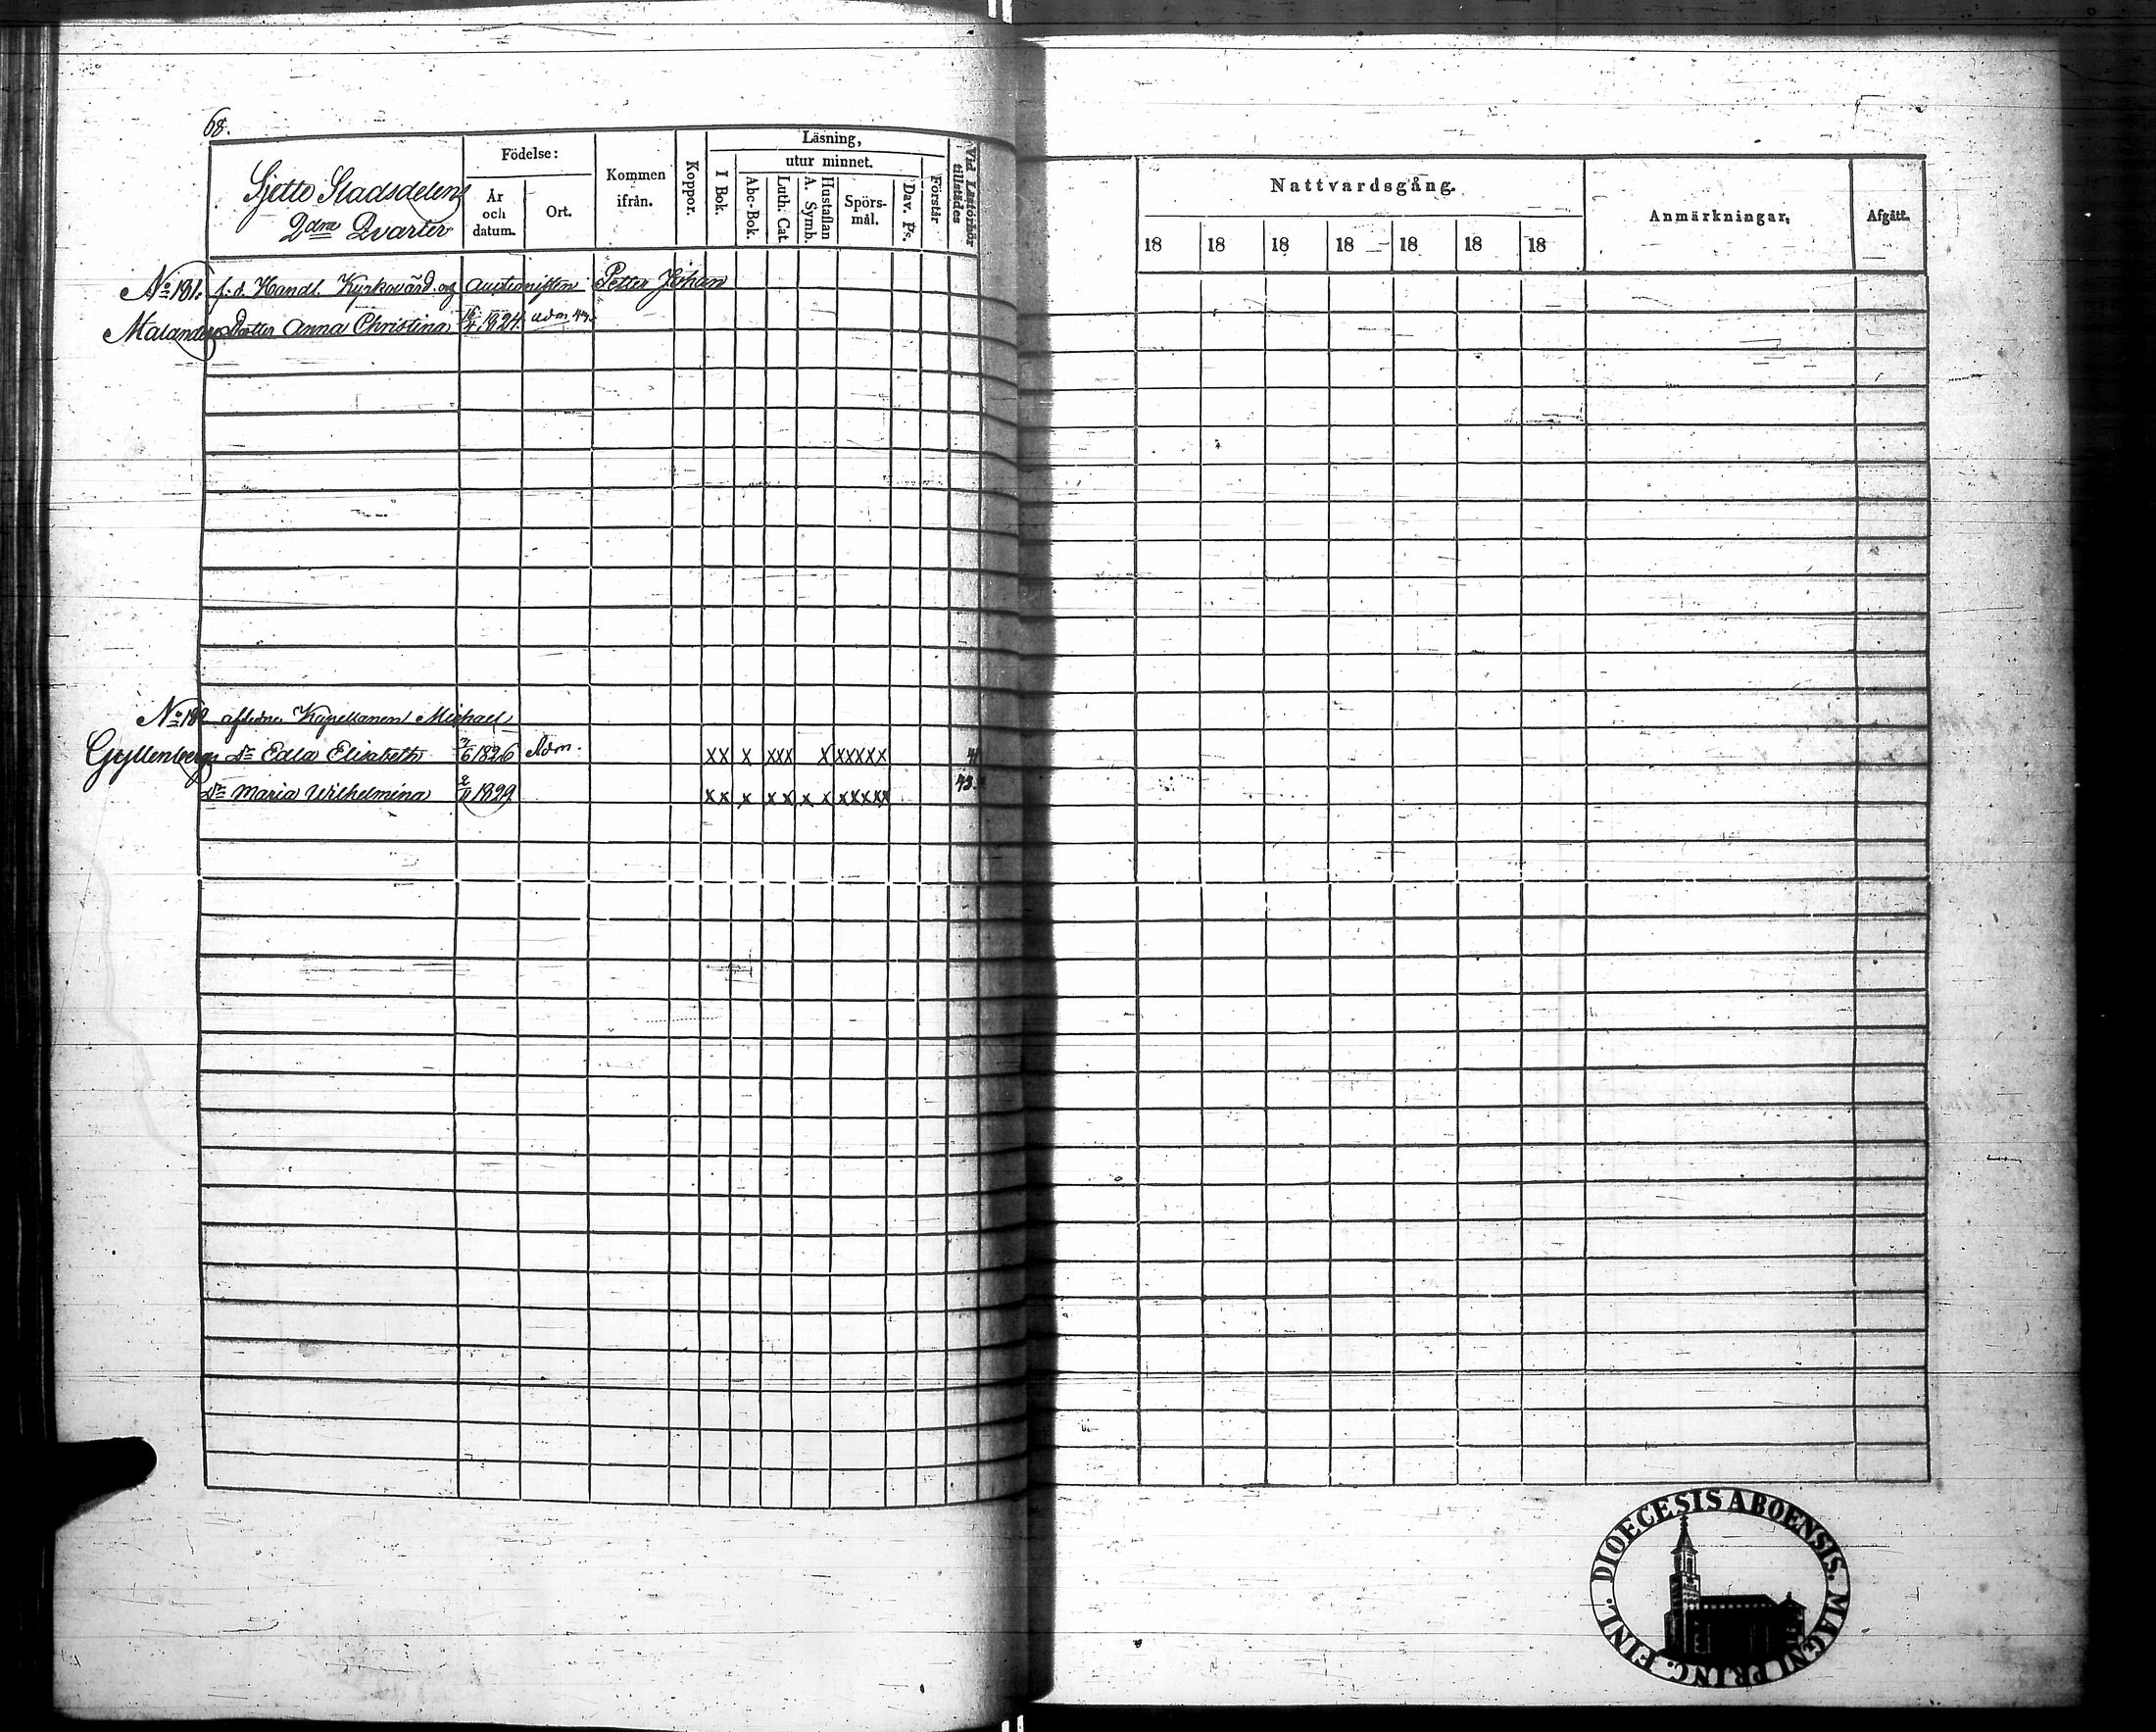 68.
Sjette Stadsdelens
2dra Qvarter
Födelse:
År och datum.
Ort.
Kommen ifrån.
Koppor.
Läsning,
I Bok.
utur minnet.
Abc-Bok.
Luth. Cat.
Hustaflan A. Symb.
Spörs-mål.
Dav. Ps.
Förstår
Vid Läsförhör tillstädes
Nattvardsgång.
18 18 18 18 18 18 18
Anmärkningar,
Afgått.
No 181. f.d. Handl. Kyrkovärd. og auctionisten Petter Johan
Malanders Dotter Anna Christina 1824. adm. 43.
No 182 afledne Kapellanen Michael
Gyllenbergs dr Edla Elisabeth 1826 Adm. xx x xxx x xxxxx 41
dr Maria Wilhelmina 1829 xx x xx x x xxxxx 43.
DIOECESIS ABOENSIS. MAGNI PRINC. FINL.